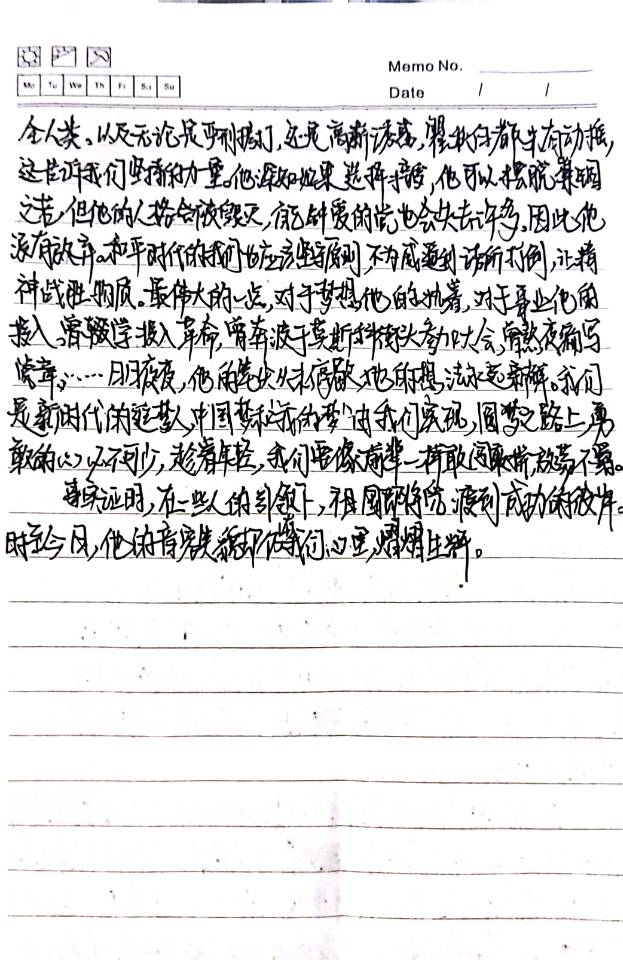 Memo No.
Mo Tu We Th Fr Sa Su
Date / /
全人类。以及无论是严刑拷打,还是高薪诱惑,瞿秋白都未有动摇,
这告诉我们坚持的力量。他深知如果选择接受,他可以摆脱囹圄
之苦,但他的人格会被毁灭,自己钟爱的党也会失去许多。因此他
没有放弃。和平时代的我们也应该坚守原则,不为威逼利诱所打倒,让精
神战胜物质。最伟大的一点,对于梦想他的执着,对于事业他的
投入。曾辍学投入革命,曾奔波于莫斯科街头参加大会,曾熬夜痛写
篇章,……日日夜夜,他的笔尖从未停歇,他的想法永远新鲜。我们
是新时代的筑梦人,中国梦和"我的梦"由我们实现,圆梦之路上,勇
敢的心必不可少,趁着年轻,我们要像前辈一样敢闯敢拼,放荡不羁。
事实证明,在一些人的引领下,祖国即将 渡到成功的彼岸。
时至今日,他的音容笑貌却依我们心里,熠熠生辉。